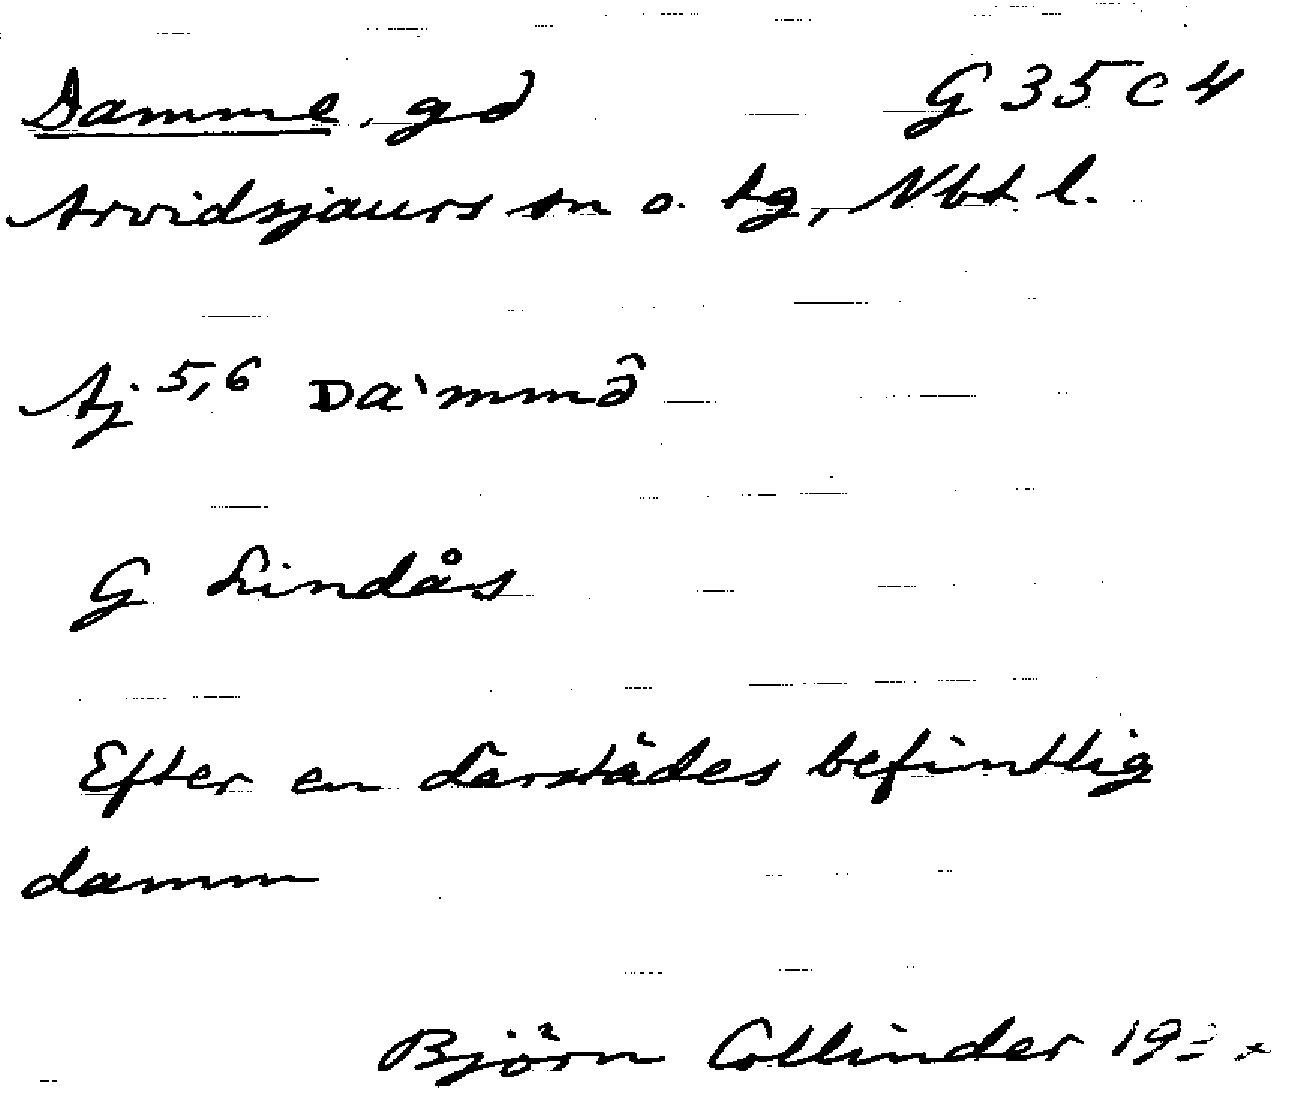 Damme, gd G 35 C 4
Arvidsjaurs sn o. tg, Nbt l.
Aj 5,6 Dàmmə̂
G Lindås
Efter en därstädes befintlig
damm
Björn Collinder